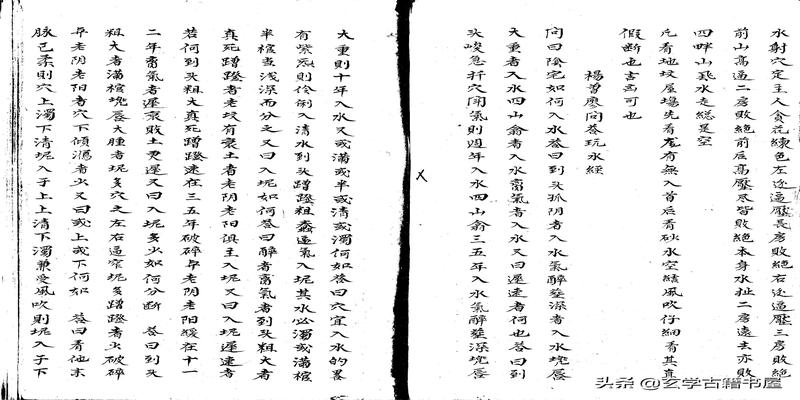 水射穴定主人貪花緑色左边逼壓長房敗絕右边逼壓三房敗絕
前山高逼二房敗絕前后高壓尽皆敗絕本身水扯二房遠去亦敗
四畔山飛水走総是空
凡看地坟屋塲先看龙有無入首后看砂水空缺風吹仔細看其真
假断也吉凶可也
楊曽廖问荅玩水經
问曰陰宅如何入水荅曰到头孤阴者入水氣醉塟深者入水塊唇
大重者入水四山翕者入水富氣者入水又曰遲速者何也荅曰到
头峻急扦穴闭氣則週年入水四山翕三五年入水氣醉塟深塊唇
大重則十年入水又或满或半或清或濁何如荅曰穴宜入水的畧
有紫氣則伶俐入清水到头蹭蹬粗蠢逼氣入坭其水必濁或满棺
半棺當浅深而分之又曰入坭如何荅曰醉者富氣者到头粗大者
真死蹭蹬者老坟有裹土者老阴老阳俱主入坭又曰入坭遲速者
若何到头粗大真死蹭蹬速在三五年破碎与老阴老阳緩在十一
二年富氣者遲裹敗土更遲又曰入坭多少如何分断 荅曰到头
粗大者满棺塊唇大腫者坭多穴之左右逼窄坭多蹭蹬者少破碎
与老阴老阳者穴下傾瀉者少又曰或上或下何如 荅曰看他来
脉已柔則穴上濁下清坭入于上上清下濁兼受風吹則坭入于下
头条@玄学古籍书屋